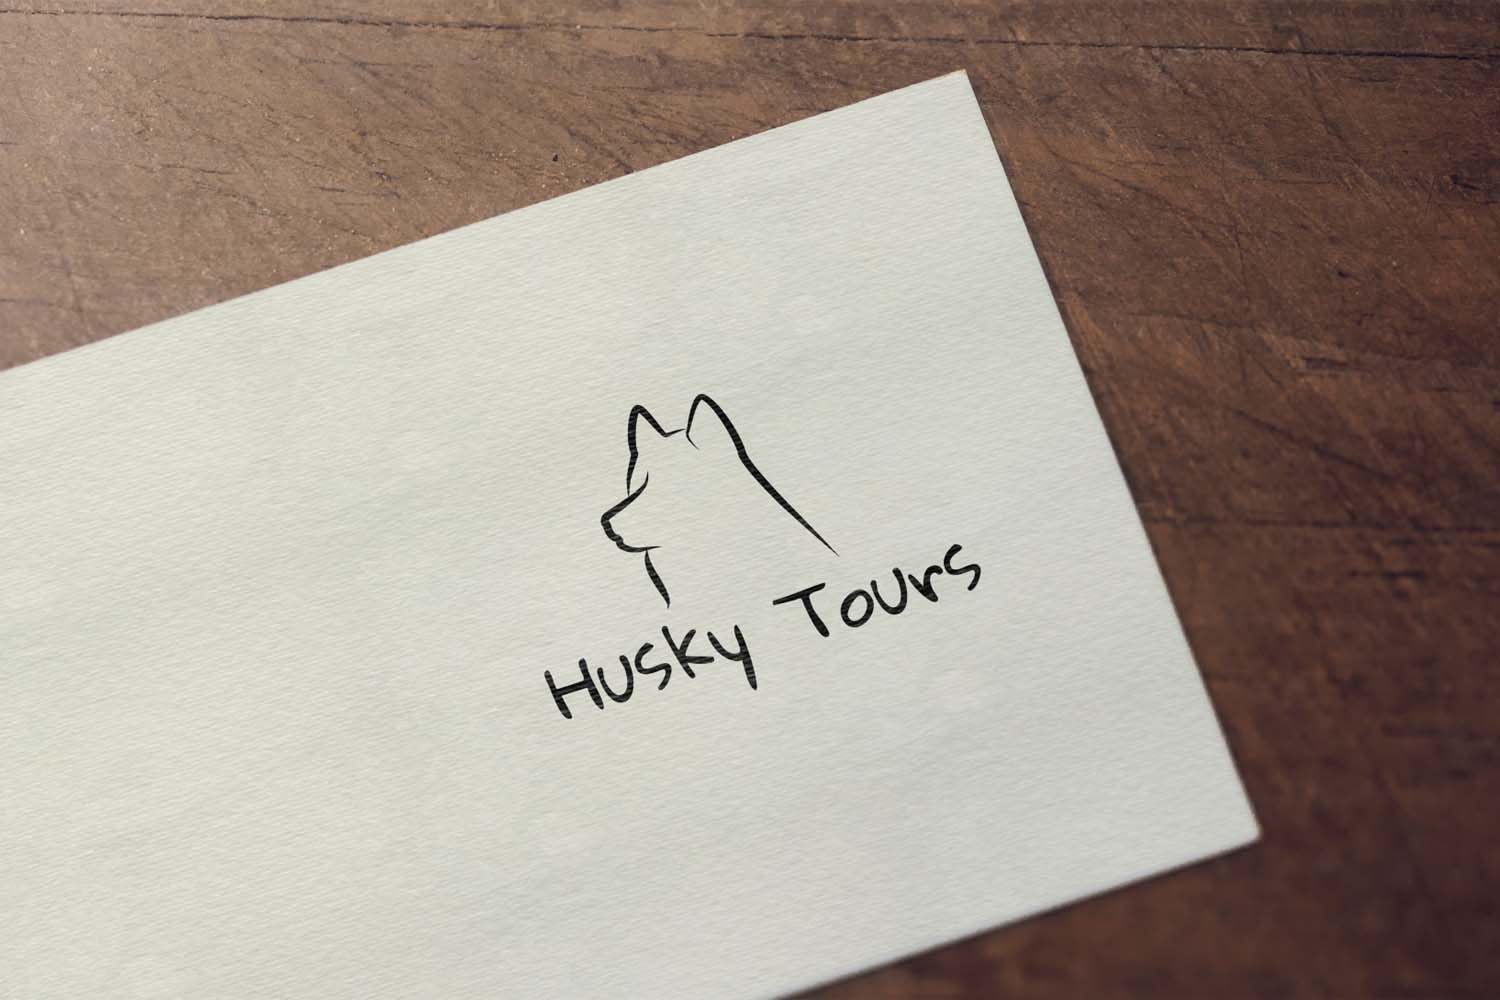 Husky Tours